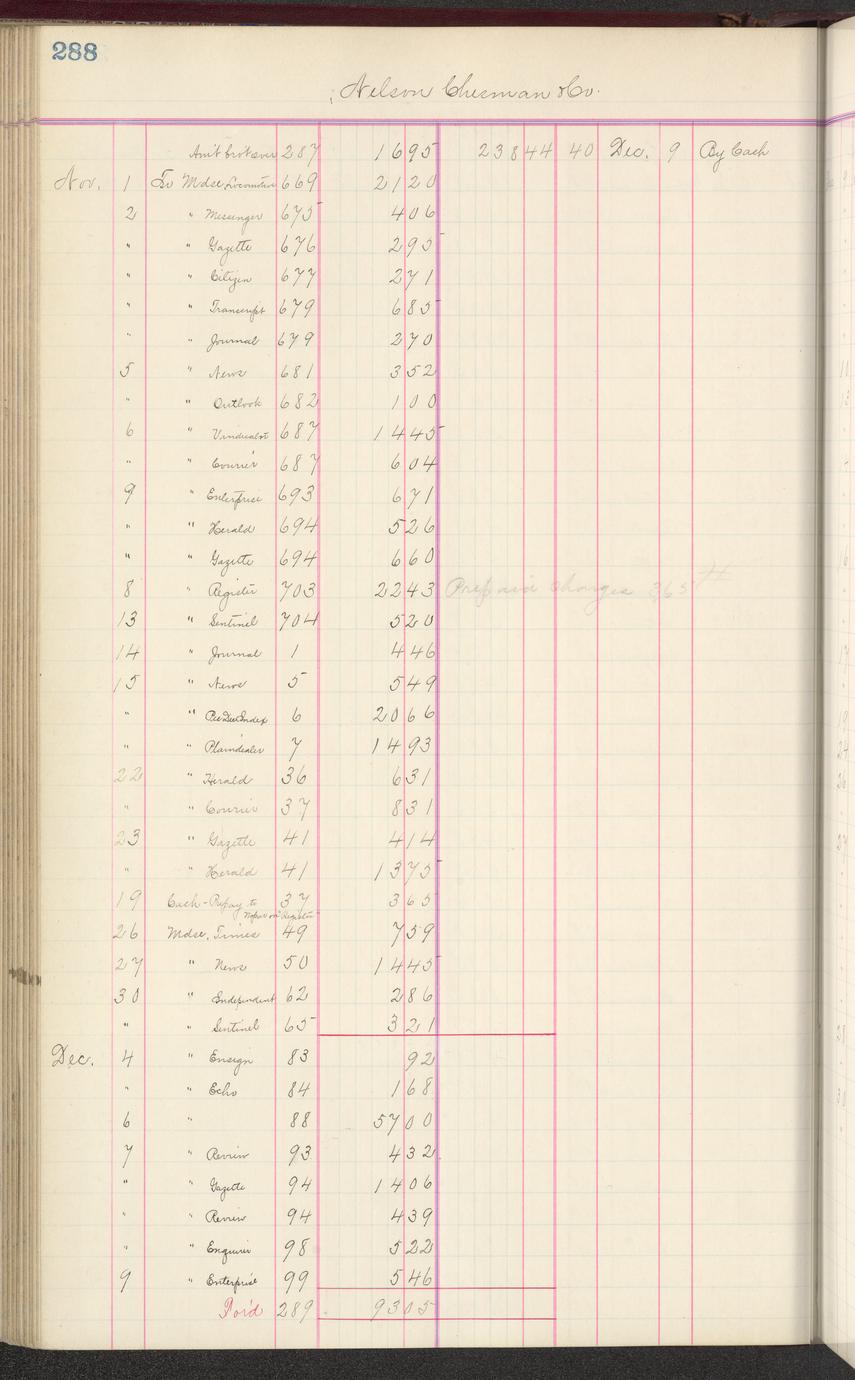 288
Nelson Chesman & Co.
Am't brot over 287 16 95 238 44 40 Dec. 9 By Cash
Nov. 1 To Mdse Locomotive 669 21 20
2 " Messenger 675 4 06
" " Gazette 676 2 95
" " Citizen 677 2 71
" " Transcript 679 6 85
" " Journal 679 2 70
5 " News 681 3 52
" " Outlook 682 1 00
6 " Vindicator 687 14 45
" " Courier 687 6 04
9 " Enterprise 693 6 71
" " Herald 694 5 26
" " Gazette 694 6 60
8 " Register 703 22 43 Prepaid Charges 3 65
13 " Sentinel 704 5 20
14 " Journal 1 4 46
15 " News 5 5 49
" " Pee Dee Index 6 20 66
" " Plaindealer 7 14 93
22 " Herald 36 6 31
" " Courier 37 8 31
23 " Gazette 41 4 14
" " Herald 41 13 75
19 Cash - Prepay to 37 3 65
on Register
26 Mdse, Times 49 7 59
27 " News 50 14 45
30 " Independent 62 2 86
" " Sentinel 65 3 21
Dec. 4 " Ensign 83 92
" " Echo 84 1 68
6 " 88 57 00
7 " Review 93 4 32
" " Gazette 94 14 06
" " Review 94 4 39
" " Enquirer 98 5 22
9 " Enterprise 99 5 46
For'd 289 93 05